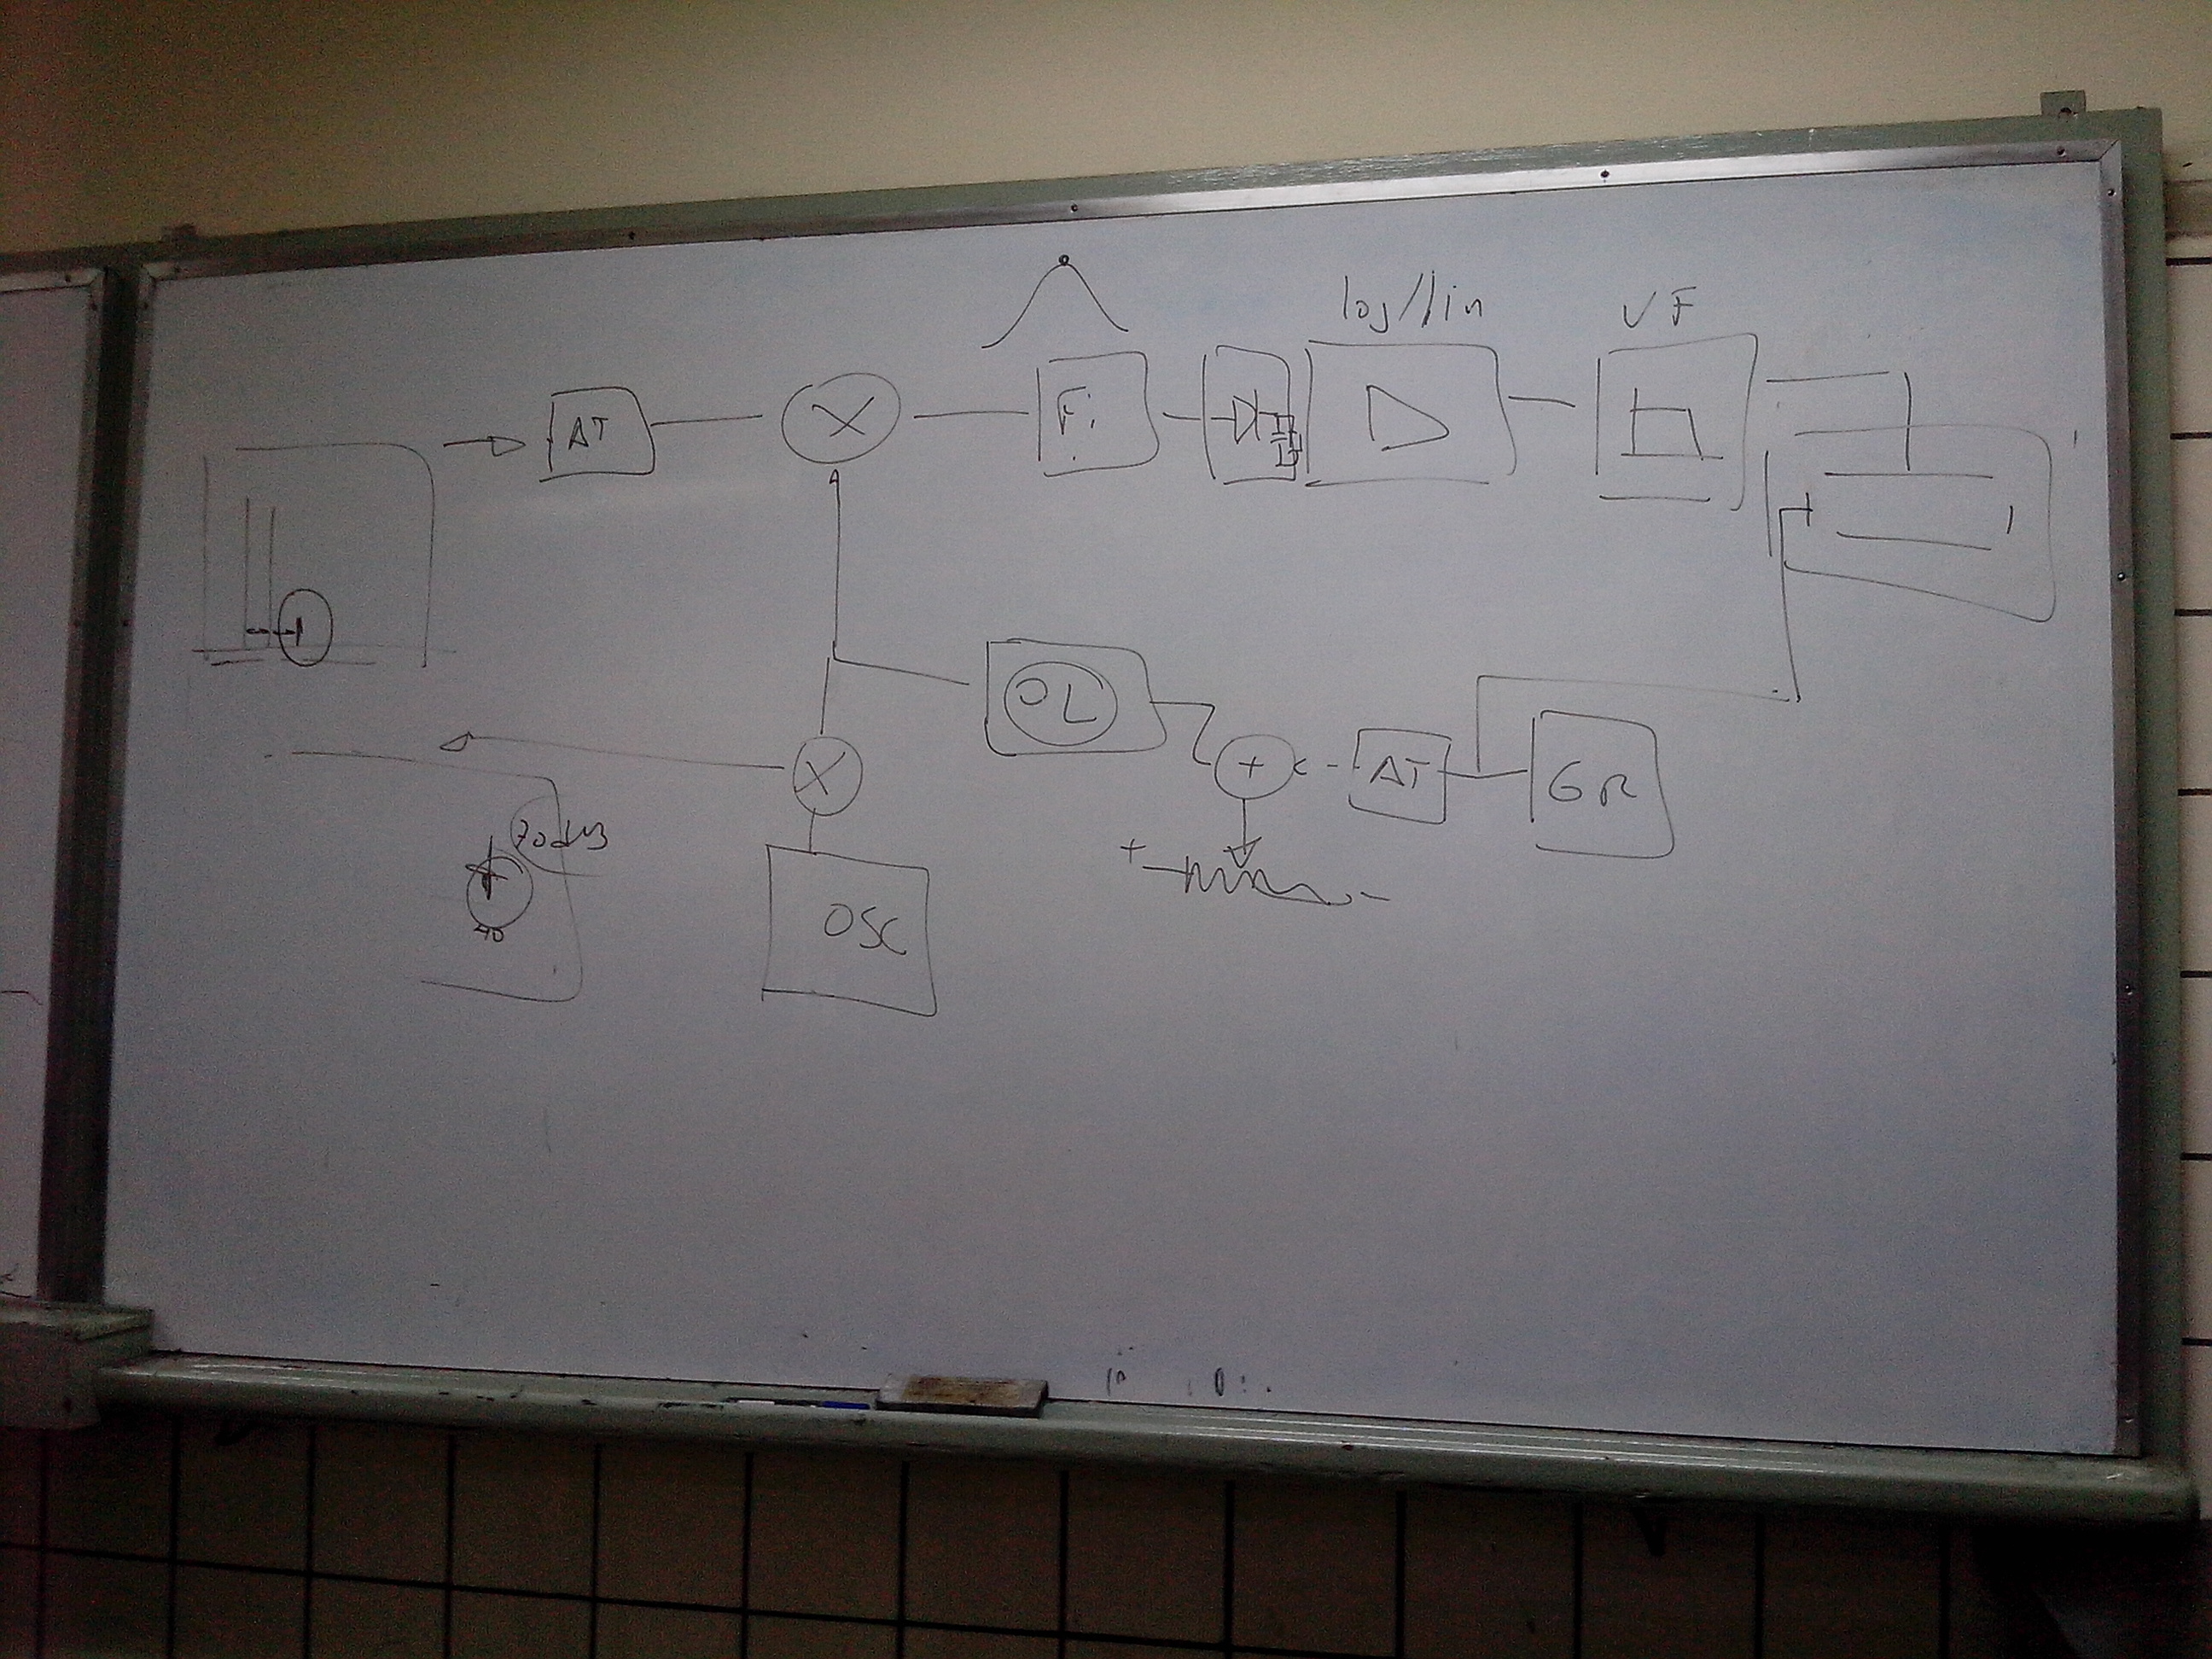 log/lin
VF
AT
X
Fi
OL
X
+
AT
GR
+
-
70dB
40
OSC